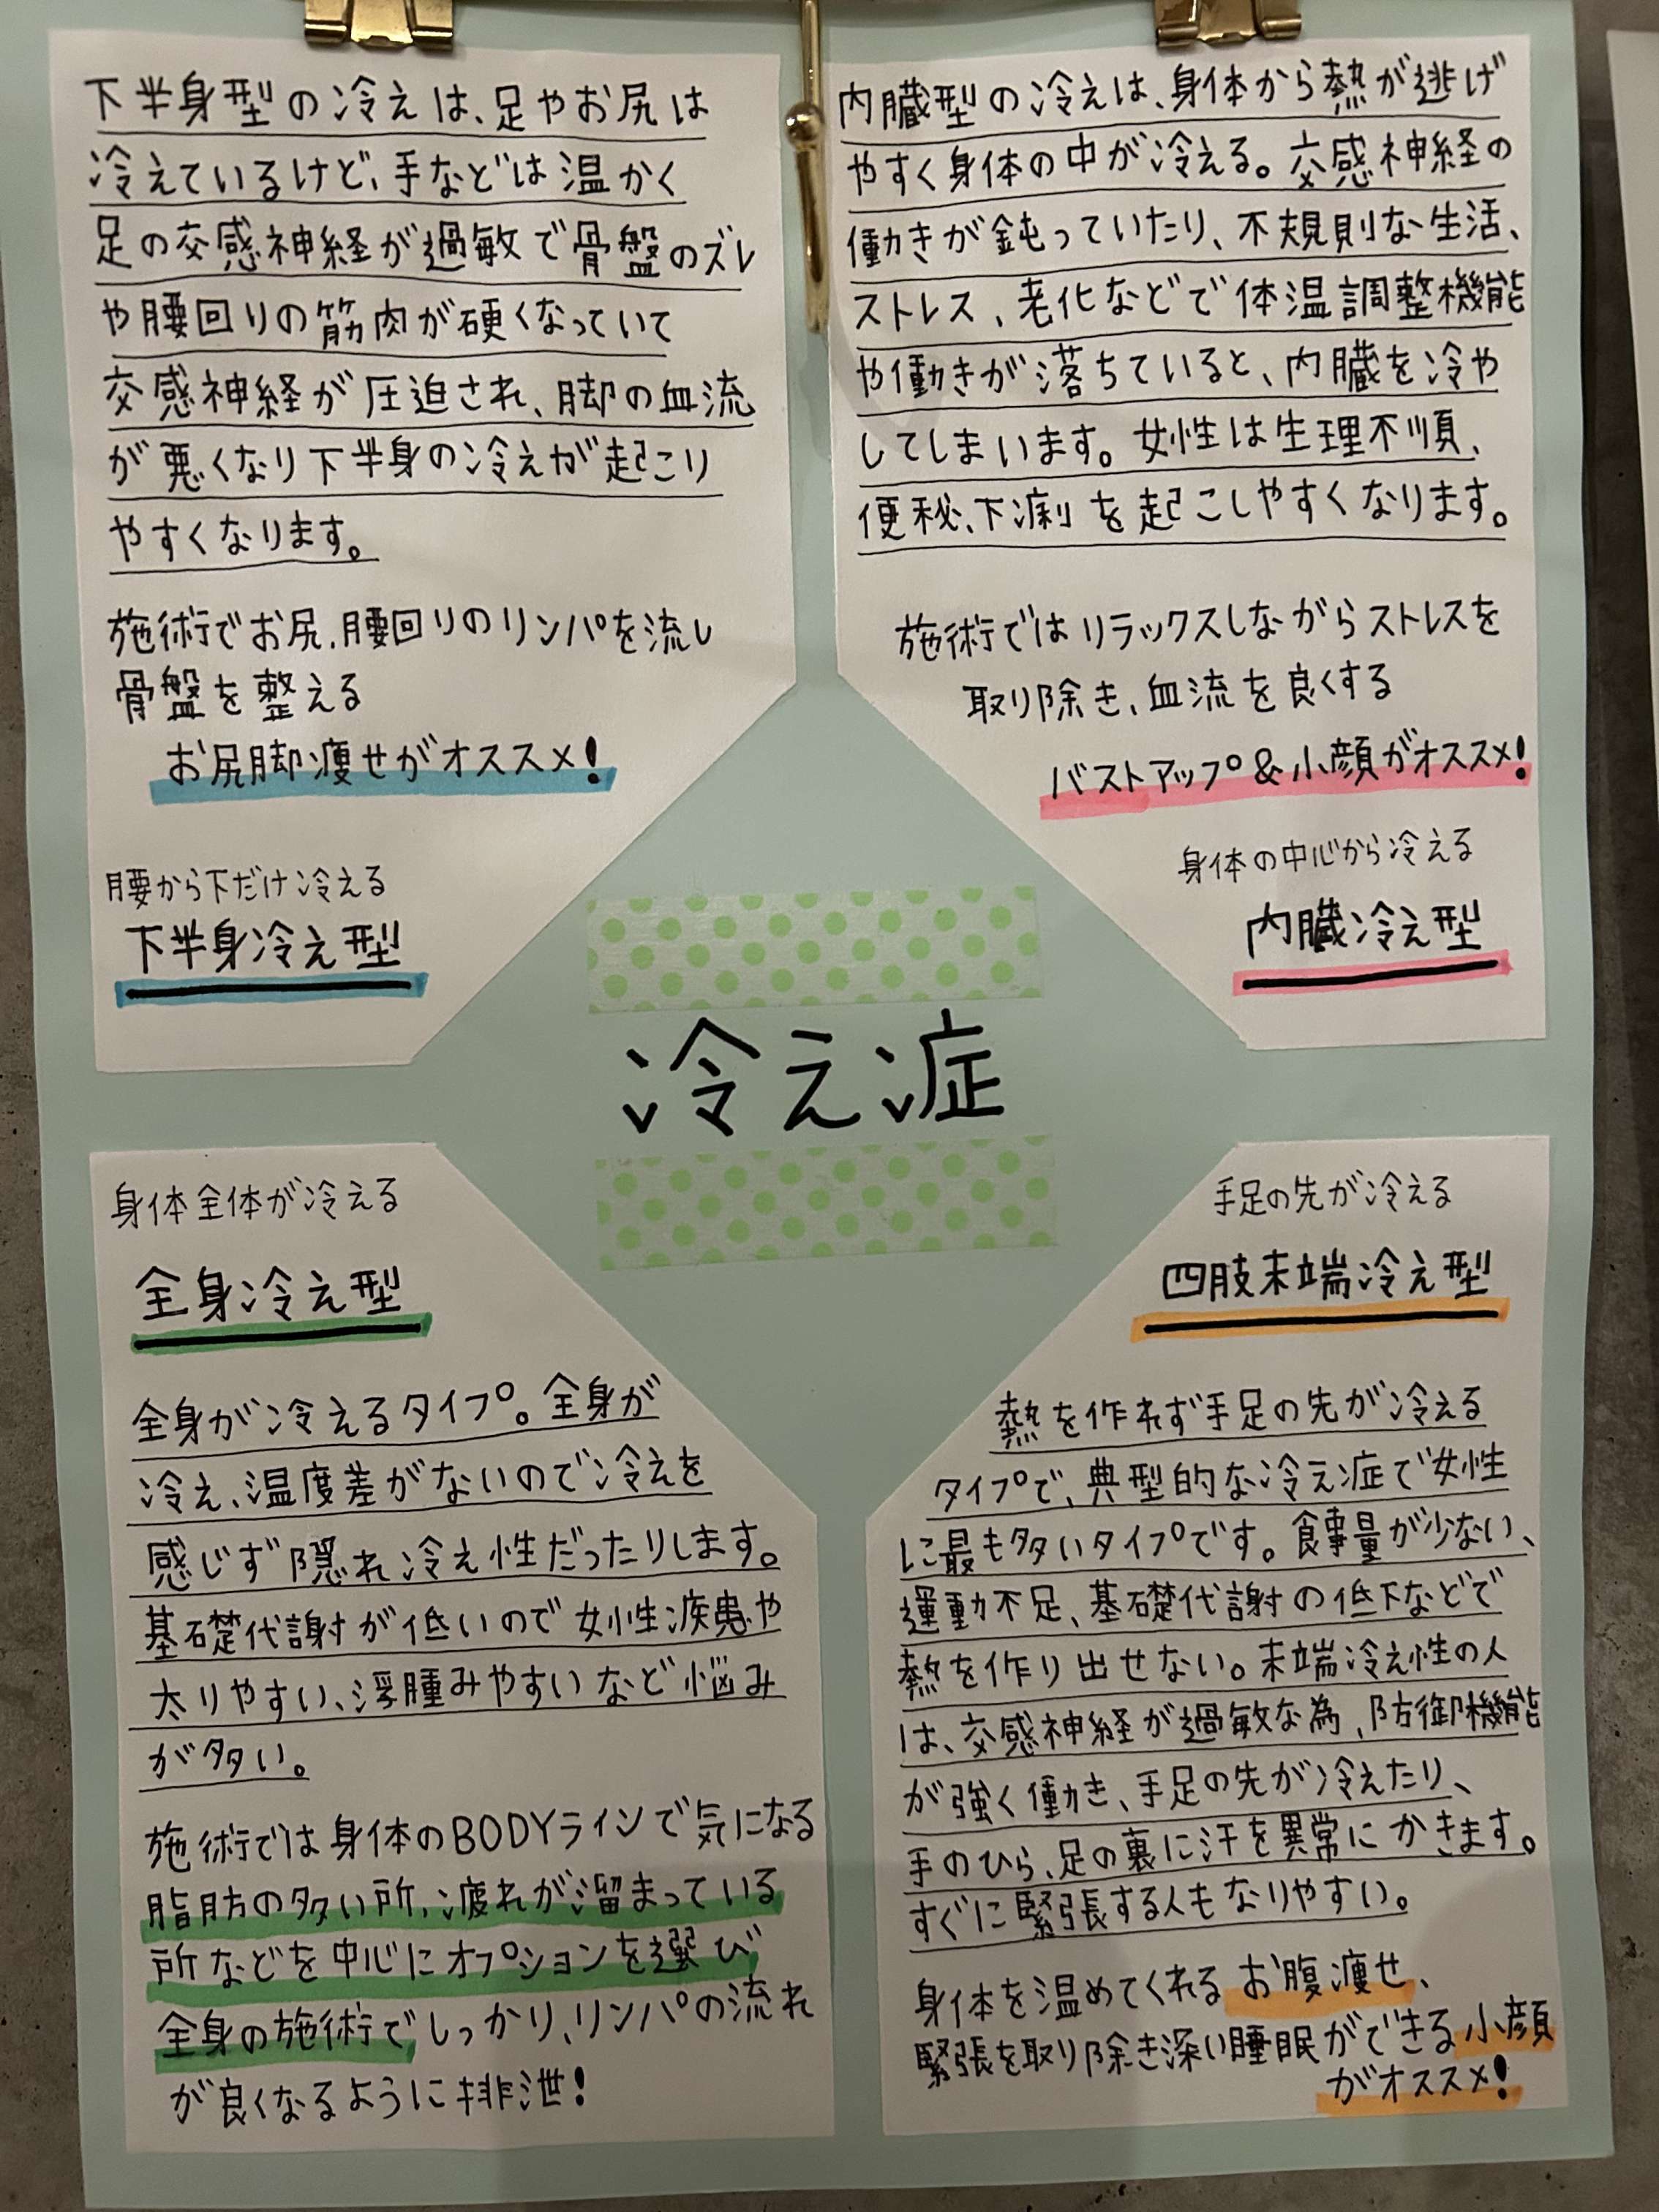 下半身型の冷えは、足やお尻は
冷えているけど、手などは温かく
足の交感神経が過敏で骨盤のズレ
や腰回りの筋肉が硬くなっていて
交感神経が圧迫され、脚の血流
が悪くなり下半身の冷えが起こり
やすくなります。
施術でお尻、腰回りのリンパを流し
骨盤を整える
お尻脚痩せがオススメ!
腰から下だけ冷える
下半身冷え型
内臓型の冷えは、身体から熱が逃げ
やすく身体の中が冷える。交感神経の
働きが鈍っていたり、不規則な生活、
ストレス、老化などで体温調整機能
や働きが落ちていると、内臓を冷や
してしまいます。女性は生理不順、
便秘、下痢を起こしやすくなります。
施術ではリラックスしながらストレスを
取り除き、血流を良くする
バストアップ&小顔がオススメ!
身体の中心から冷える
内臓冷え型
冷え症
身体全体が冷える
全身冷え型
全身が冷えるタイプ。全身が
冷え、温度差がないので冷えを
感じず隠れ冷え性だったりします。
基礎代謝が低いので女性疾患や
太りやすい、浮腫みやすいなど悩み
が多い。
施術では身体のBODYラインで気になる
脂肪の多い所、疲れが溜まっている
所などを中心にオプションを選び
全身の施術でしっかり、リンパの流れ
が良くなるように排泄!
手足の先が冷える
四肢末端冷え型
熱を作れず手足の先が冷える
タイプで、典型的な冷え症で女性
に最も多いタイプです。食事量が少ない、
運動不足、基礎代謝の低下などで
熱を作り出せない。末端冷え性の人
は、交感神経が過敏な為、防御機能
が強く働き、手足の先が冷えたり、
手のひら、足の裏に汗を異常にかきます。
すぐに緊張する人もなりやすい。
身体を温めてくれるお腹痩せ、
緊張を取り除き深い睡眠ができる小顔
がオススメ!